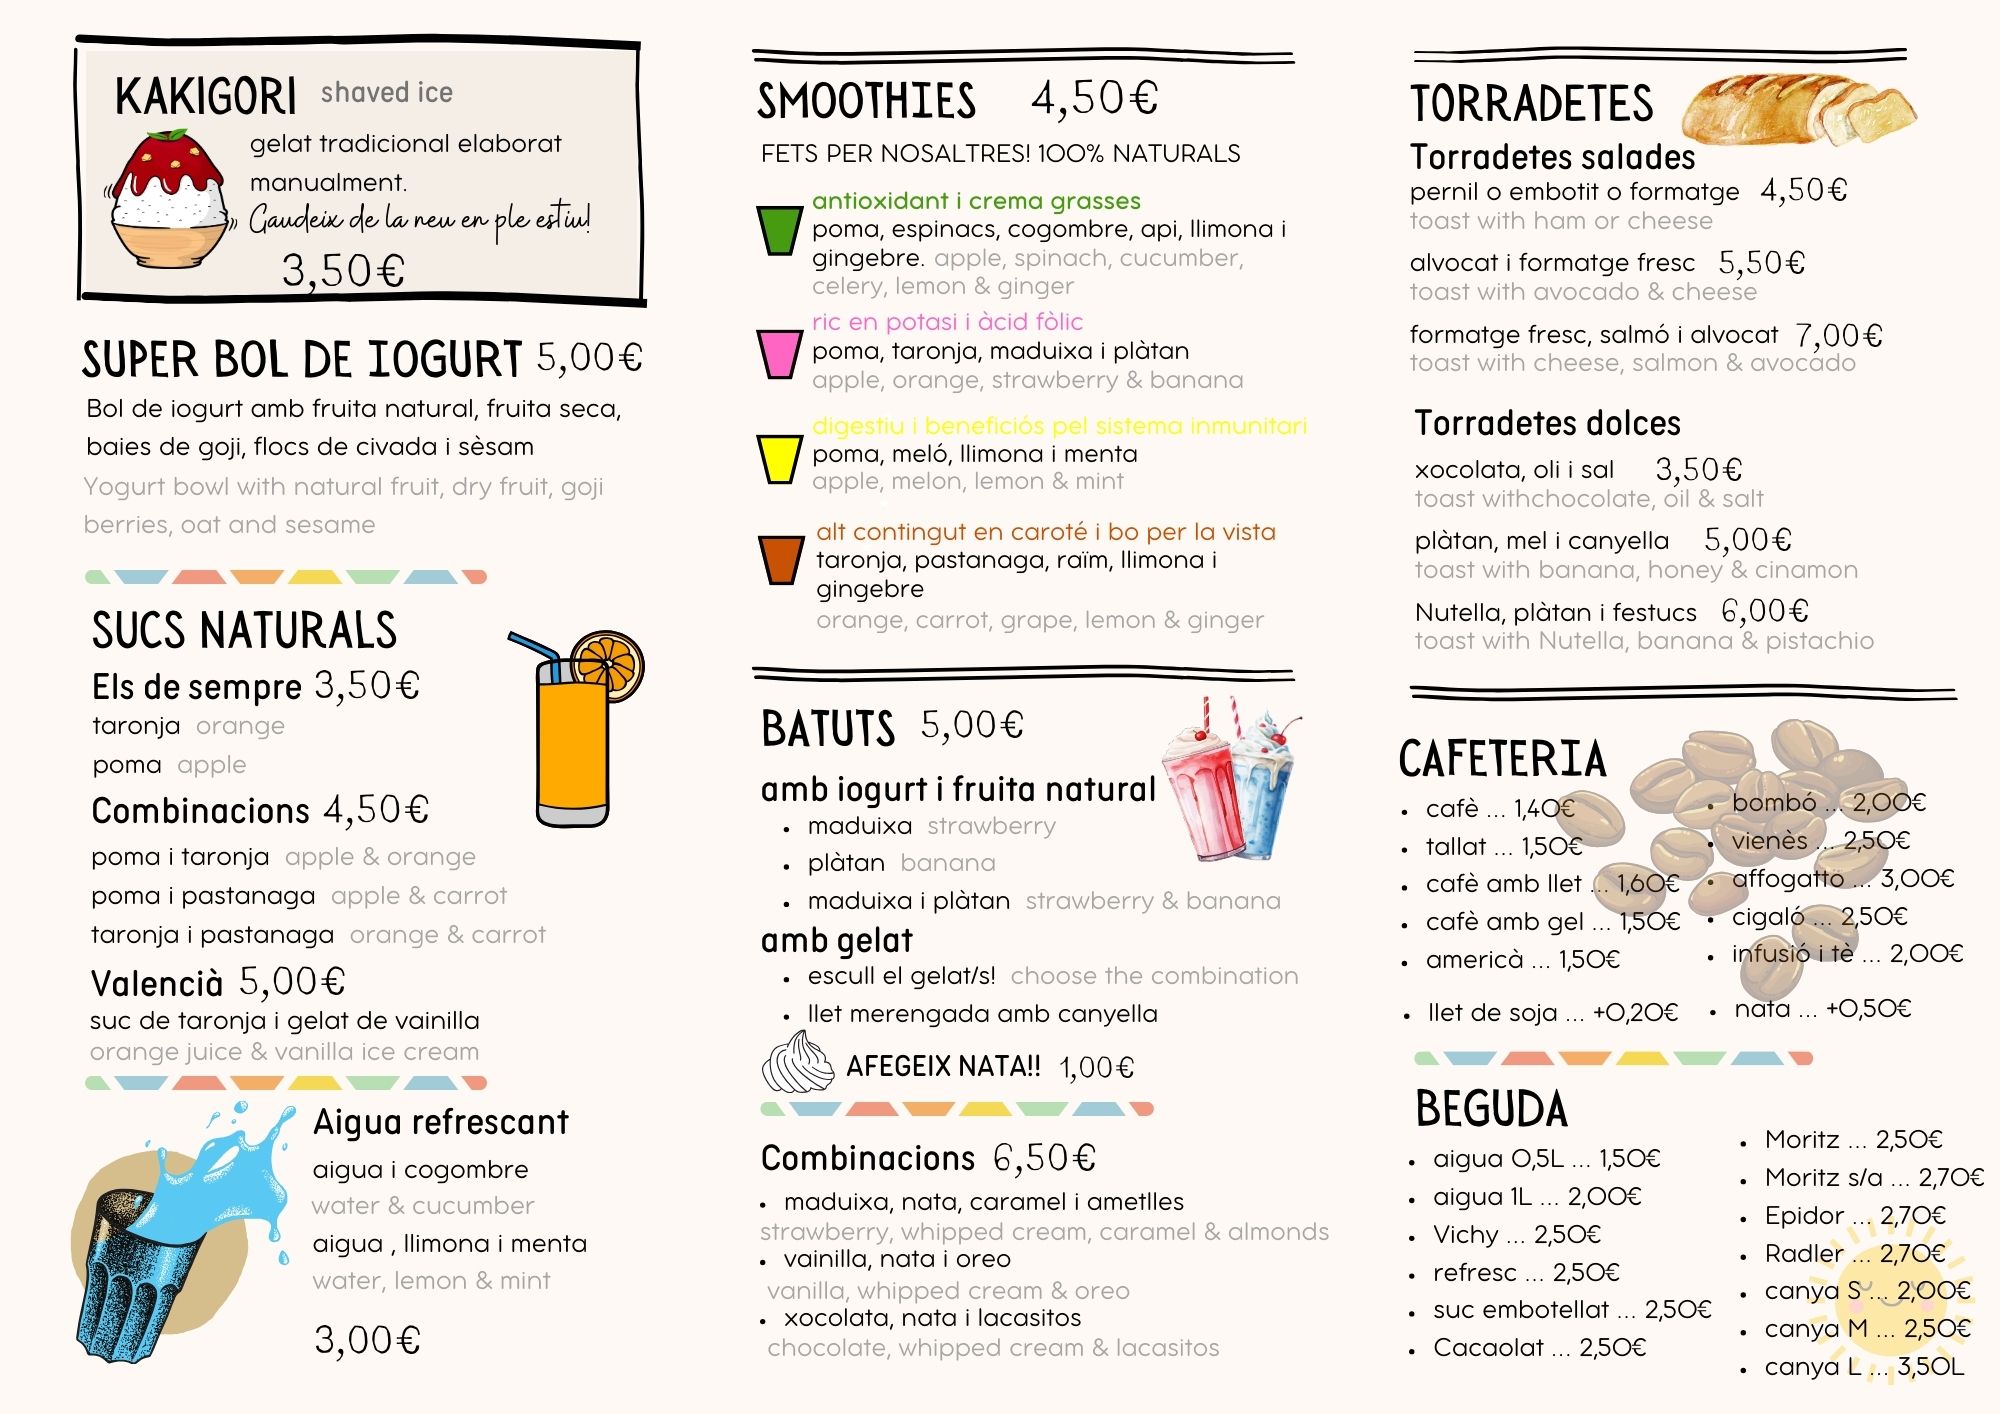 KAKIGORI shaved ice
gelat tradicional elaborat
manualment.
Gaudeix de la neu en ple estiu!
3,50€
SUPER BOL DE IOGURT 5,00€
Bol de iogurt amb fruita natural, fruita seca,
baies de goji, flocs de civada i sèsam
Yogurt bowl with natural fruit, dry fruit, goji
berries, oat and sesame
SUCS NATURALS
Els de sempre 3,50€
taronja orange
poma apple
Combinacions 4,50€
poma i taronja apple & orange
poma i pastanaga apple & carrot
taronja i pastanaga orange & carrot
Valencià 5,00€
suc de taronja i gelat de vainilla
orange juice & vanilla ice cream
Aigua refrescant
aigua i cogombre
water & cucumber
aigua , llimona i menta
water, lemon & mint
3,00€
SMOOTHIES 4,50€
FETS PER NOSALTRES! 100% NATURALS
antioxidant i crema grasses
poma, espinacs, cogombre, api, llimona i
gingebre. apple, spinach, cucumber,
celery, lemon & ginger
ric en potasi i àcid fòlic
poma, taronja, maduixa i plàtan
apple, orange, strawberry & banana
digestiu i beneficiós pel sistema inmunitari
poma, meló, llimona i menta
apple, melon, lemon & mint
alt contingut en caroté i bo per la vista
taronja, pastanaga, raïm, llimona i
gingebre
orange, carrot, grape, lemon & ginger
BATUTS 5,00€
amb iogurt i fruita natural
• maduixa strawberry
• plàtan banana
• maduixa i plàtan strawberry & banana
amb gelat
• escull el gelat/s! choose the combination
• llet merengada amb canyella
AFEGEIX NATA!! 1,00€
Combinacions 6,50€
• maduixa, nata, caramel i ametlles
strawberry, whipped cream, caramel & almonds
• vainilla, nata i oreo
vanilla, whipped cream & oreo
• xocolata, nata i lacasitos
chocolate, whipped cream & lacasitos
TORRADETES
Torradetes salades
pernil o embotit o formatge 4,50€
toast with ham or cheese
alvocat i formatge fresc 5,50€
toast with avocado & cheese
formatge fresc, salmó i alvocat 7,00€
toast with cheese, salmon & avocado
Torradetes dolces
xocolata, oli i sal 3,50€
toast withchocolate, oil & salt
plàtan, mel i canyella 5,00€
toast with banana, honey & cinamon
Nutella, plàtan i festucs 6,00€
toast with Nutella, banana & pistachio
CAFETERIA
• cafè ... 1,40€
• tallat ... 1,50€
• cafè amb llet ... 1,60€
• cafè amb gel ... 1,50€
• americà ... 1,50€
• llet de soja ... +0,20€
• bombó ... 2,00€
• vienès ... 2,50€
• affogatto ... 3,00€
• cigaló ... 2,50€
• infusió i tè ... 2,00€
• nata ... +0,50€
BEGUDA
• aigua 0,5L ... 1,50€
• aigua 1L ... 2,00€
• Vichy ... 2,50€
• refresc ... 2,50€
• suc embotellat ... 2,50€
• Cacaolat ... 2,50€
• Moritz ... 2,50€
• Moritz s/a ... 2,70€
• Epidor ... 2,70€
• Radler ... 2,70€
• canya S ... 2,00€
• canya M ... 2,50€
• canya L ... 3,50L